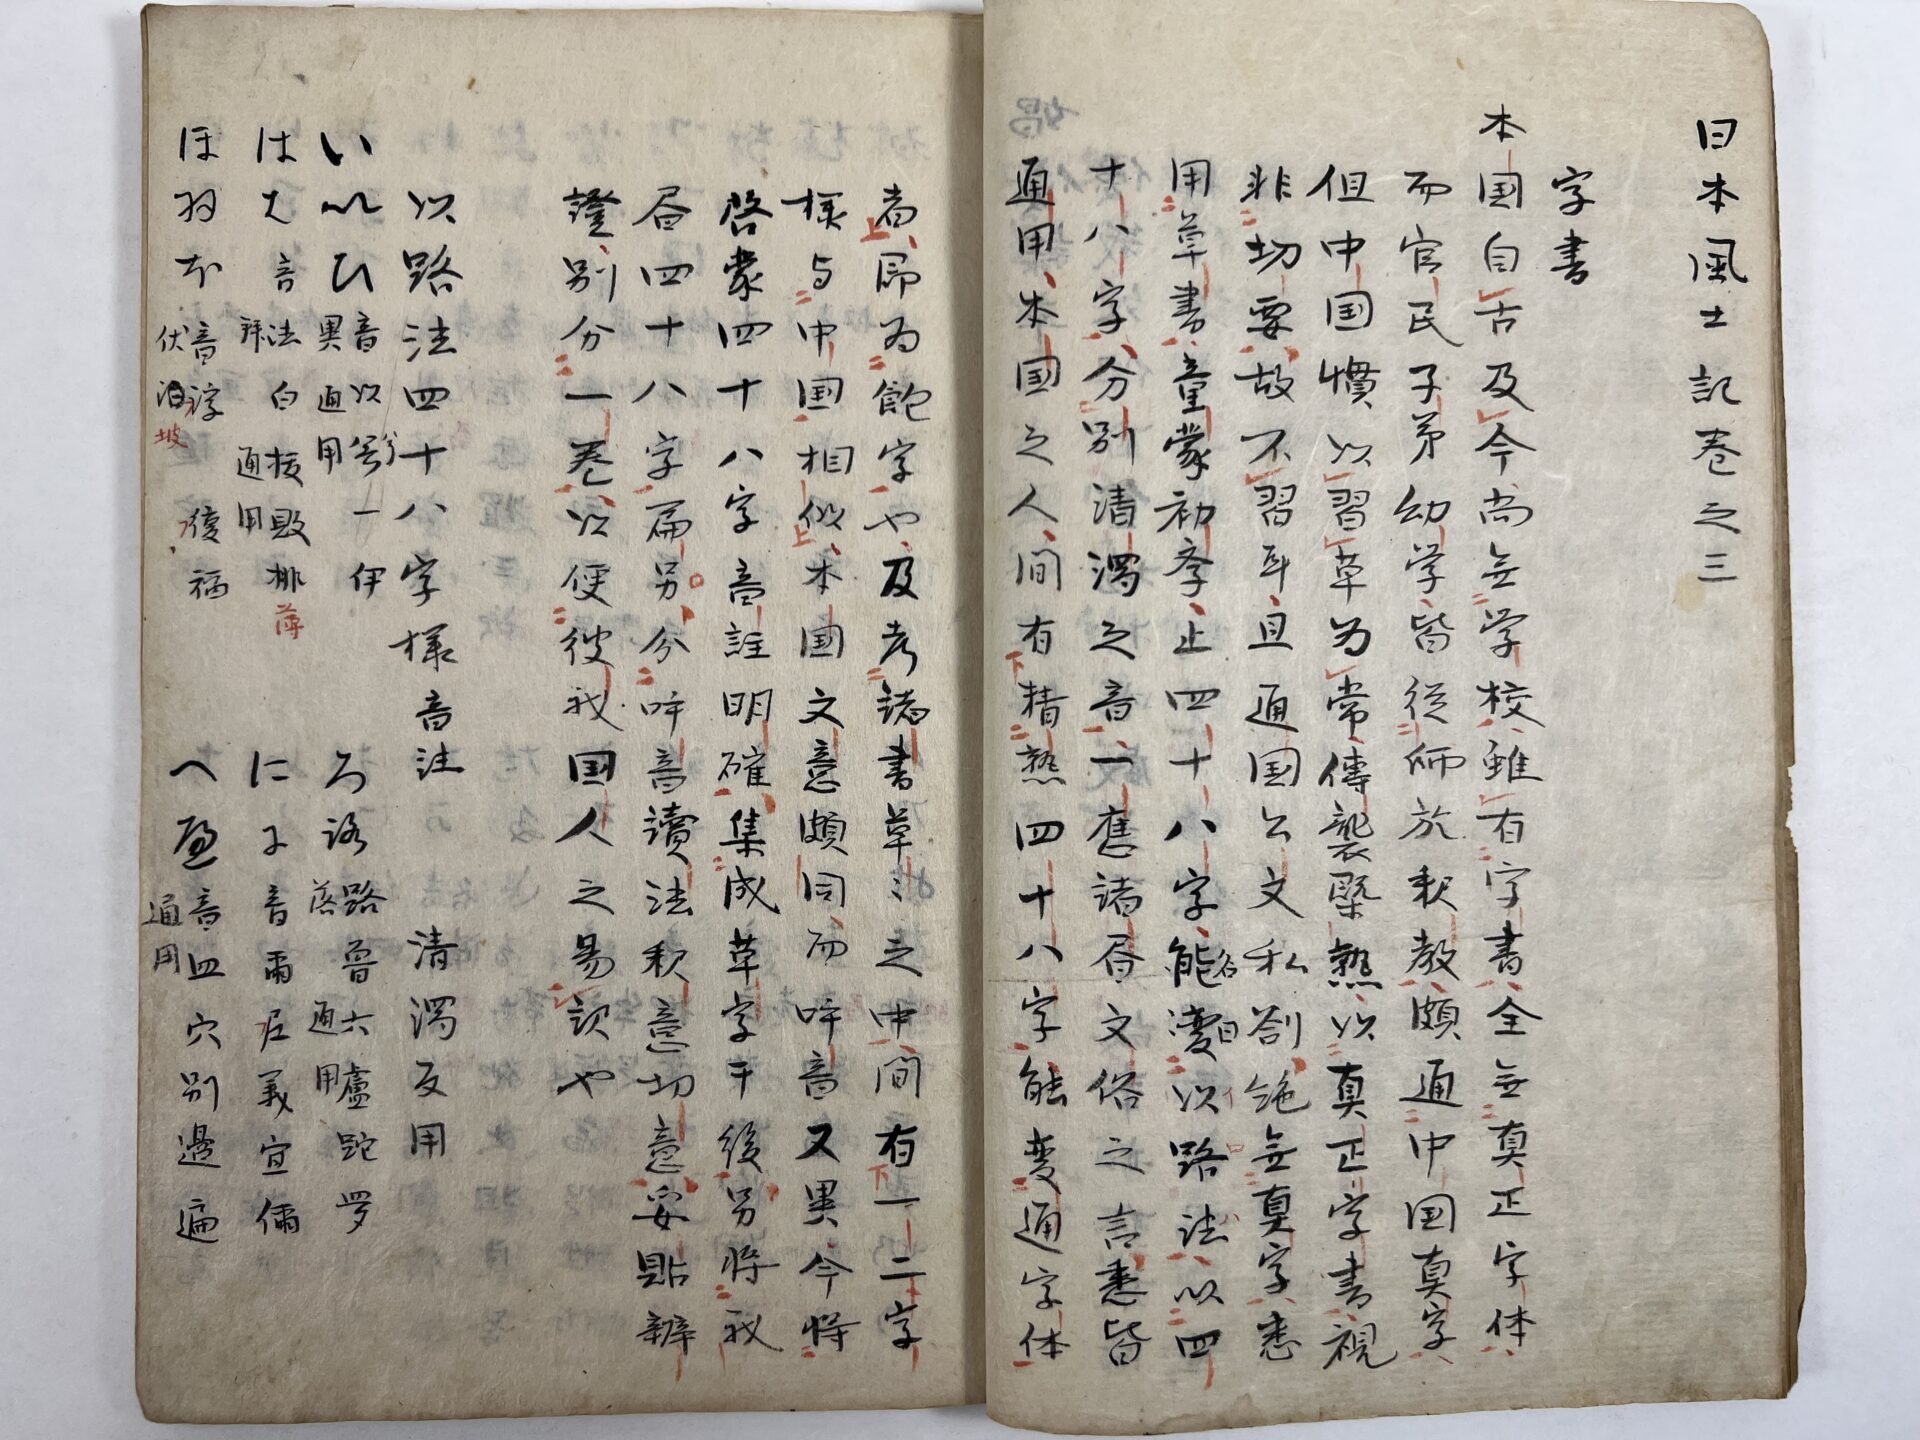 日本風土記巻之三
字書
本国自古及今尚無学校雖有字書全無真正字体
而官民子弟幼学皆従師於釈教頗通中国真字
但中国慣以習草為常傳襲槩熟以真正字書視
非切要故不習耳且通国公文私劄絶無真字悉
用草書童蒙初孝止四十八字能变以路法以四
十八字分別清濁之音一應諸届文俗之言悉皆
通用本国之人間有精熟四十八字能变通字体
者扁為飽字也及考諸書草之中間有一二字
様与中国相似本国文意頗同而呼音又異今将
啓蒙四十八字音註明確集成草字于後另将我
届四十八字扁另分呼音讀法釈意切意妥貼辨
證別分一巻以便彼我国人之易識也
以路法四十八字様音注 清濁反用
い 以 ひ 音以另一伊異通用
ろ 路 路魯六盧跎罗落通用
は 音法白抜敗排拜通用
に 音爾尼義宜儒
ほ 羽 音浮復福伏泊
へ 音皿穴別邊遍通用